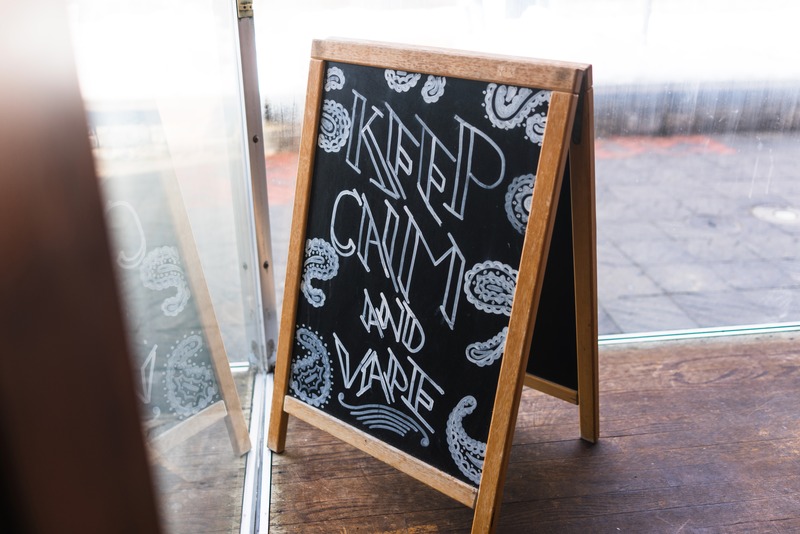 KEEP
CALM
AND
VAPE